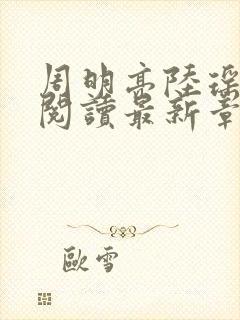 周明高陸深
閱讀最新章
歐雪